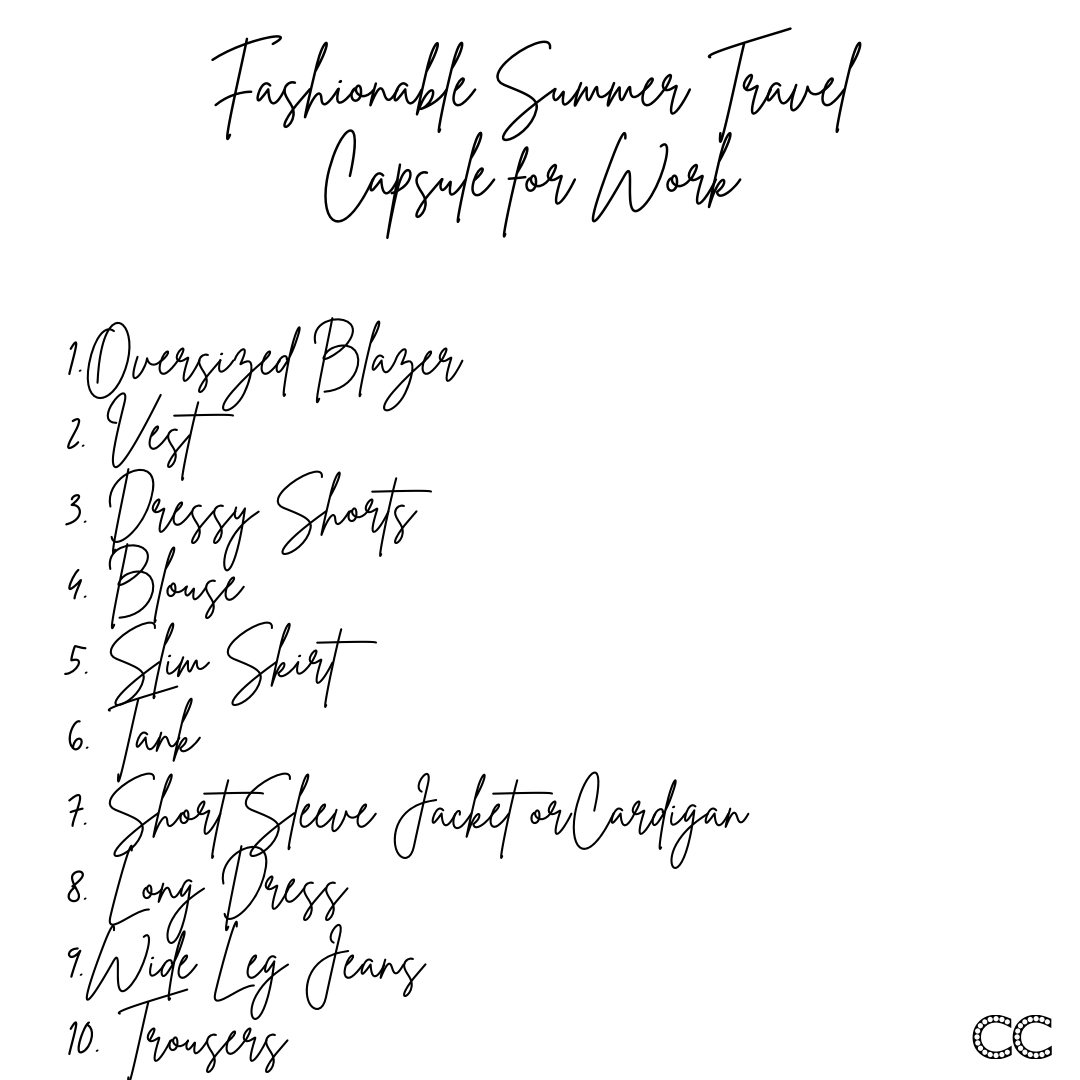 Fashionable Summer Travel
Capsule for Work
1. Oversized Blazer
2. Vest
3. Dressy Shorts
4. Blouse
5. Slim Skirt
6. Tank
7. Short Sleeve Jacket or Cardigan
8. Long Dress
9. Wide Leg Jeans
10. Trousers
CC